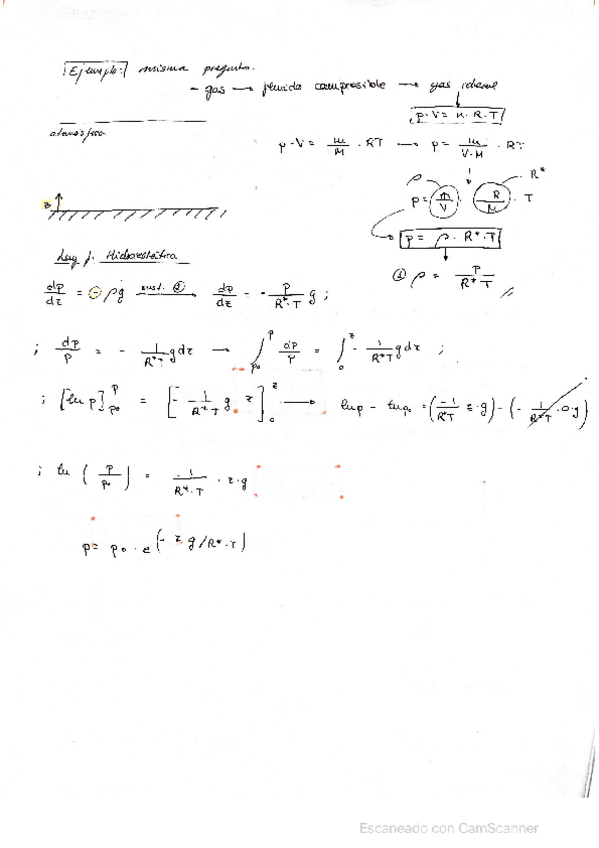 Ejemplo: misma pregunta.
- gas → fluido compresible → gas ideal
p·V = n·R·T
atmósfera
p·V = m/M · RT → p = m/(V·M) · RT
ρ R*
p = m/V · R/M · T
z
p = ρ · R* · T
Ley f. Hidrostática
① ρ = p/(R*·T)
dp/dz = -ρg sust. ① → dp/dz = - p/(R*·T) g ;
; dp/p = - 1/(R*T) g dz → ∫_{p0}^{p} dp/p = ∫_0^z - 1/(R*T) g dz ;
; [ln p]_{p0}^{p} = [- 1/(R*T) g z]_0^z → ln p - ln p0 = (-1/(R*T) z·g) - (- 1/(R*T) ·0·g)
; ln (p/p0) = -1/(R*·T) · z·g
p = p0 · e^(- z g/R*·T)
Escaneado con CamScanner